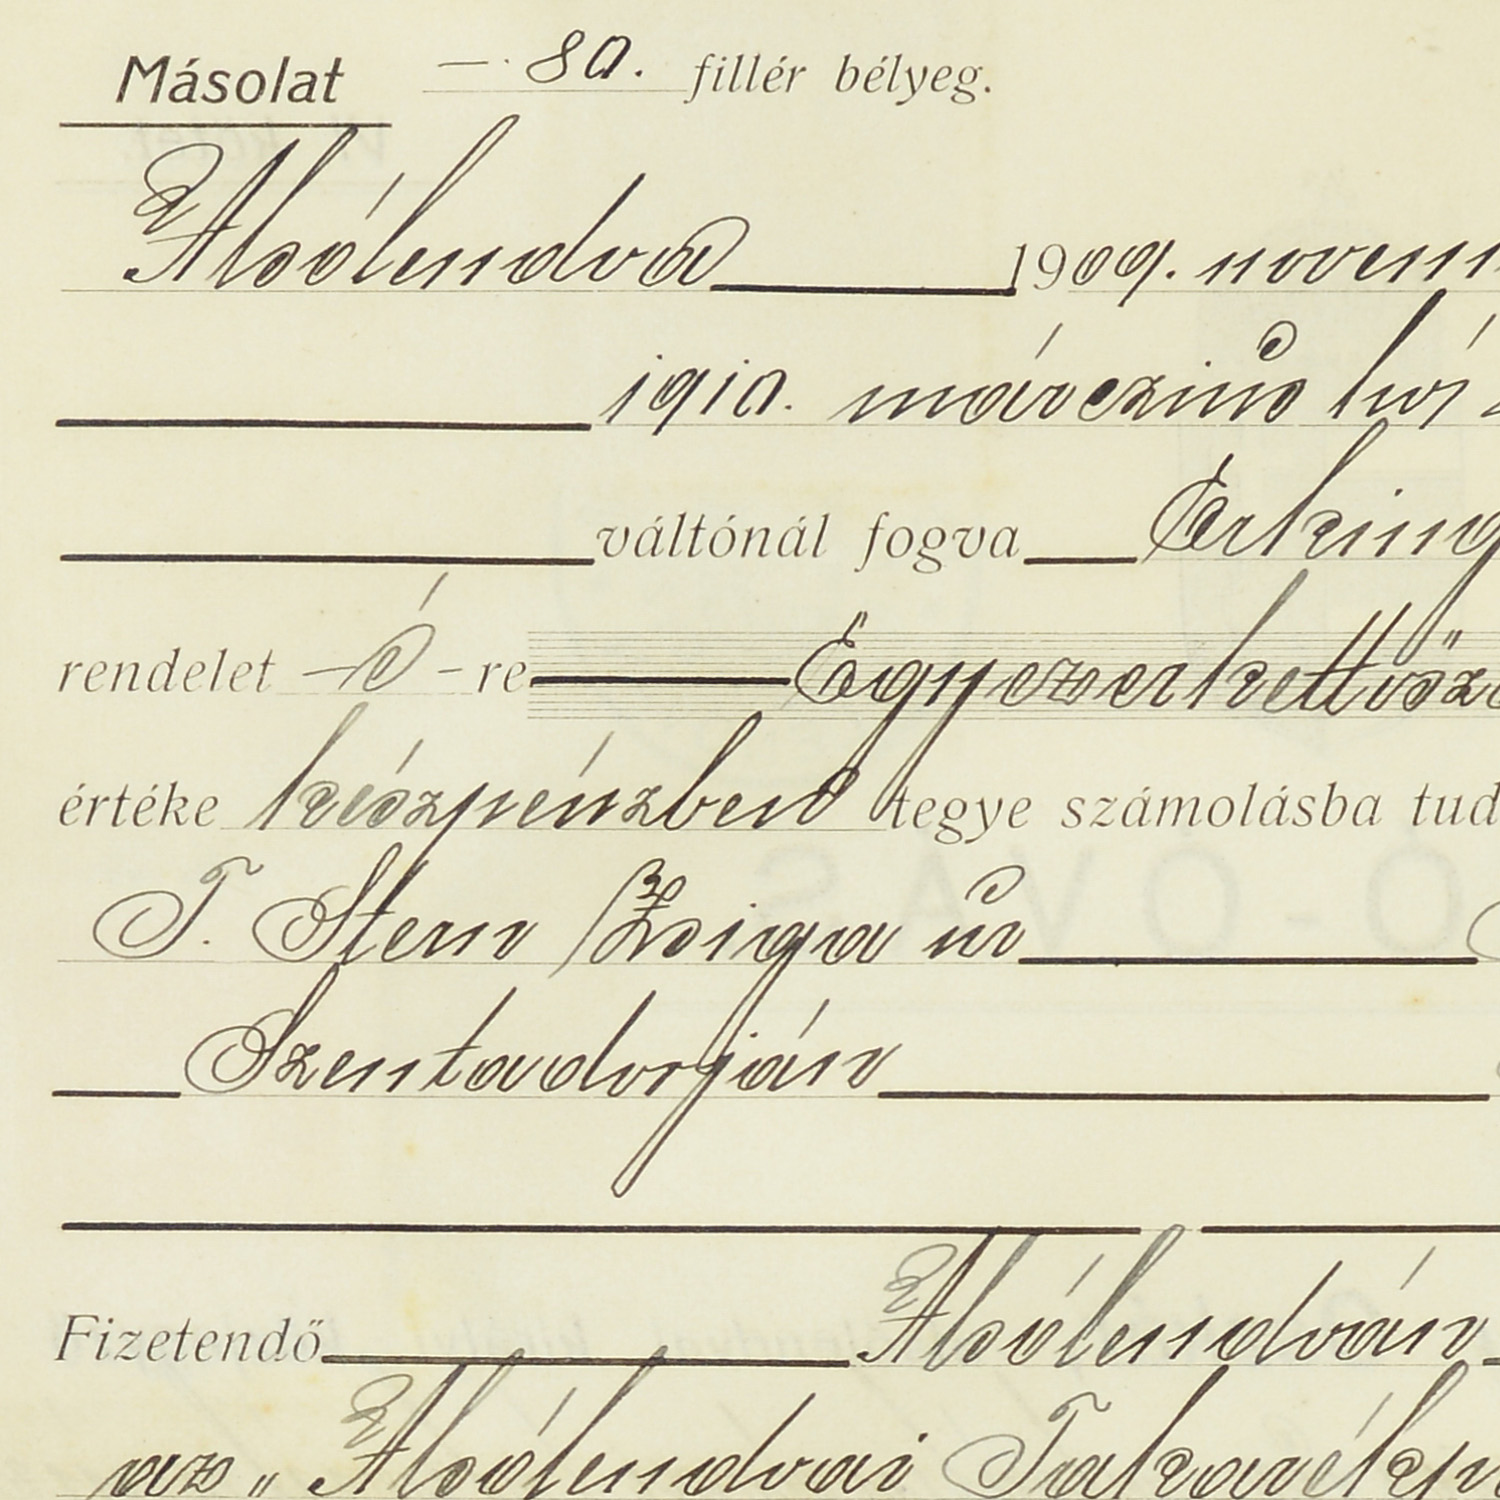 Másolat — . 80. fillér bélyeg.
Alsólendva 1909. novem
1910. márczius hó
váltónál fogva Erking
rendelet – é – re Egyezerkettősz
értéke készpénzben tegye számolásba tud
T. Stern Zsiga úr
Szentadorján
Fizetendő Alsólendván
az „Alsólendvai Takarékp